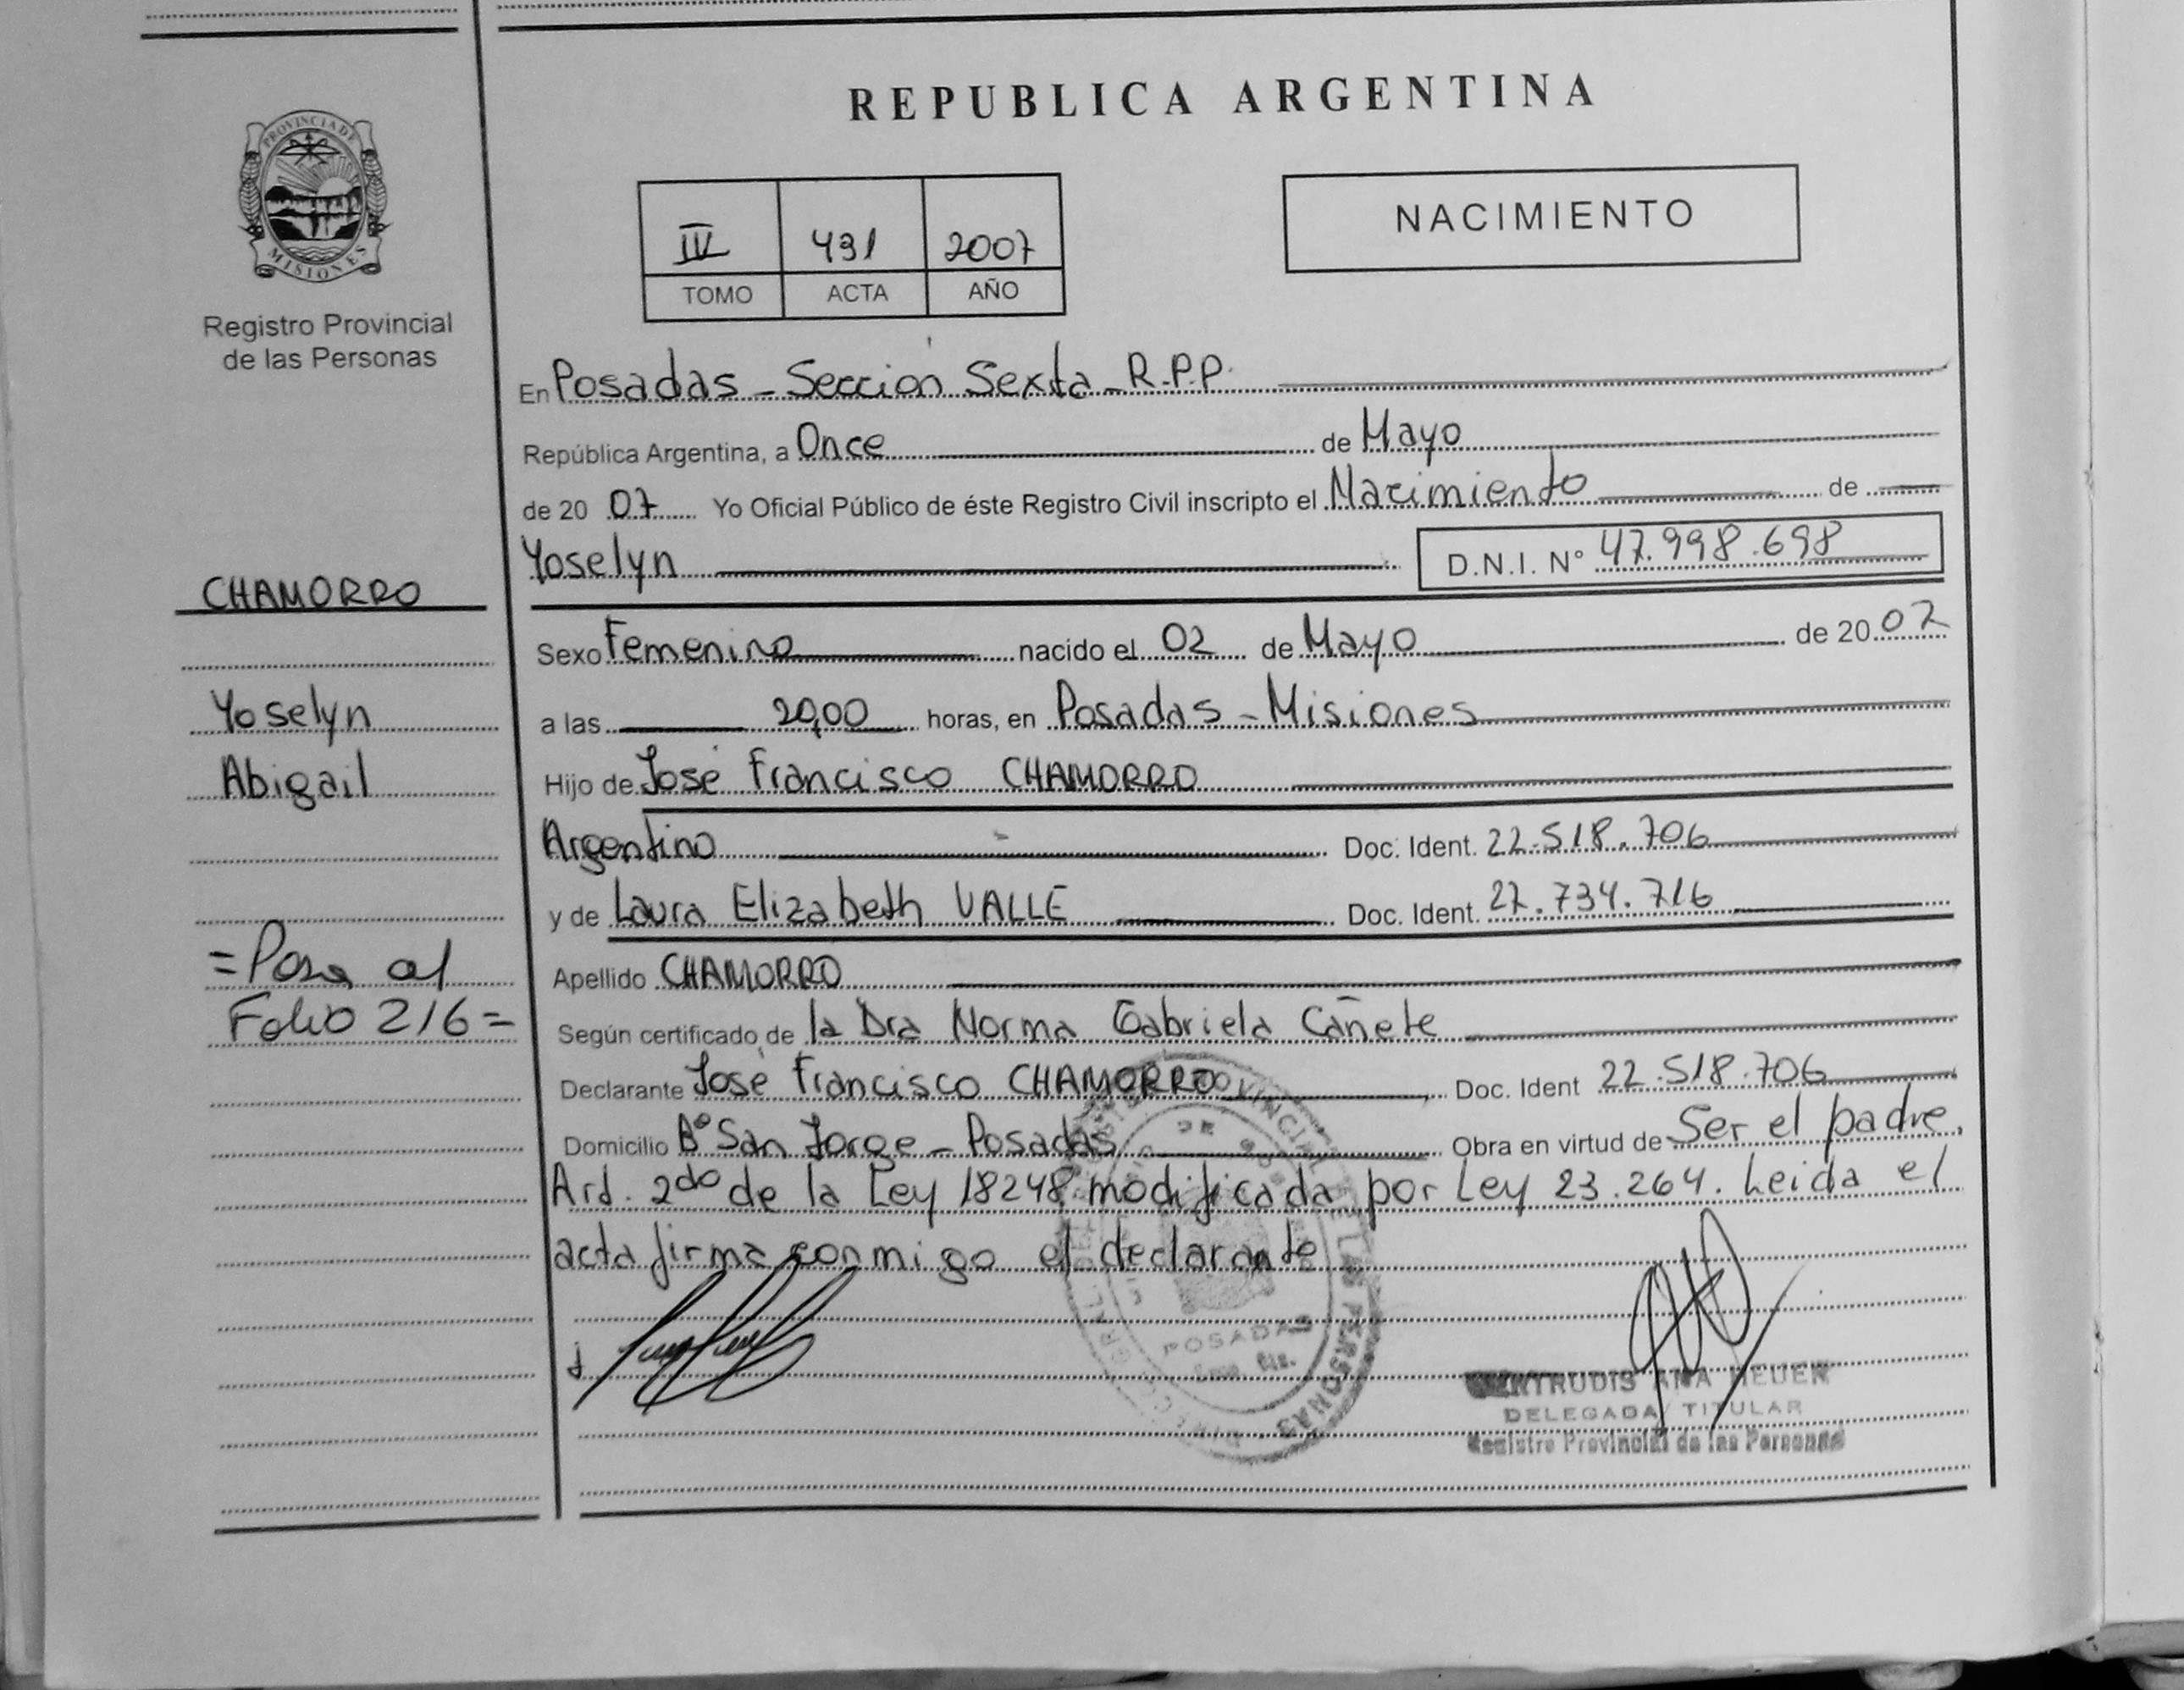 REPUBLICA ARGENTINA
PROVINCIA DE
MISIONES
Registro Provincial
de las Personas
NACIMIENTO
IV 431 2007
TOMO ACTA AÑO
En Posadas - Sección Sexta - R.P.P.
República Argentina, a Once de Mayo
de 20 07 Yo Oficial Público de éste Registro Civil inscripto el Nacimiento de
Yoselyn D.N.I. Nº 47.998.698
CHAMORRO
Sexo Femenino nacido el 02 de Mayo de 20 07
Yoselyn
a las 20,00 horas, en Posadas - Misiones
Abigail
Hijo de José Francisco CHAMORRO
Argentino Doc. Ident. 22.518.706
y de Laura Elizabeth VALLE Doc. Ident. 27.734.716
=Pasa al
Folio 216=
Apellido CHAMORRO
Según certificado de la Dra Norma Gabriela Cañete
Declarante José Francisco CHAMORRO Doc. Ident 22.518.706
Domicilio Bº San Jorge - Posadas Obra en virtud de Ser el padre,
Art. 2do de la Ley 18248 modificada por Ley 23.264. Leida el
acta firma conmigo el declarante
POSADAS
ANA
DELEGADA TITULAR
Registro Provincial de las Personas